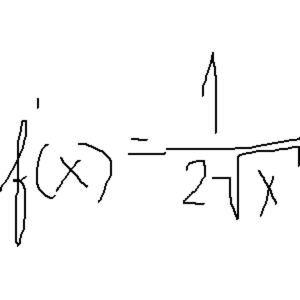 f'(x) = 1/(2√x)